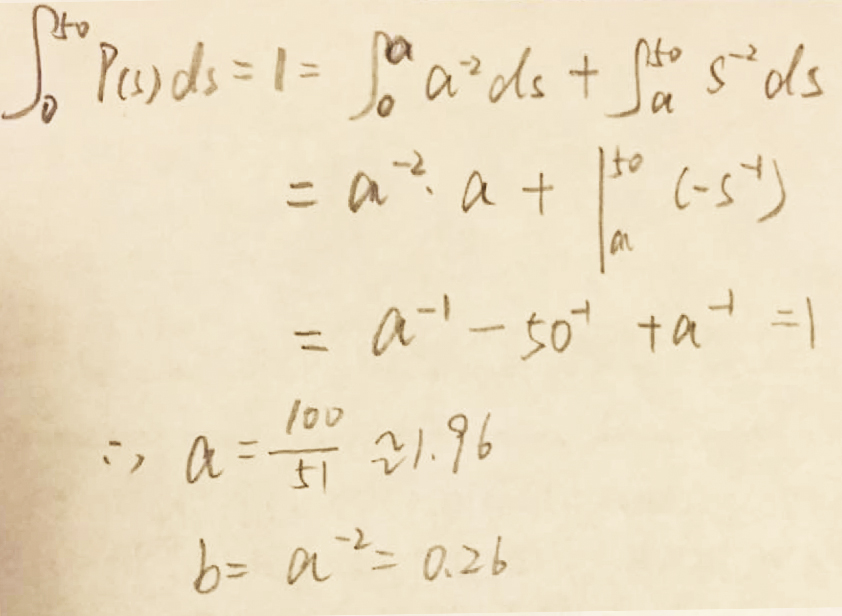 ∫₀⁵⁰ P(s) ds = 1 = ∫₀ᵃ a⁻² ds + ∫ₐ⁵⁰ s⁻² ds
= a⁻² · a + |ₐ⁵⁰ (-s⁻¹)
= a⁻¹ - 50⁻¹ + a⁻¹ = 1
∴ a = 100/51 ≈ 1.96
b = a⁻² = 0.26